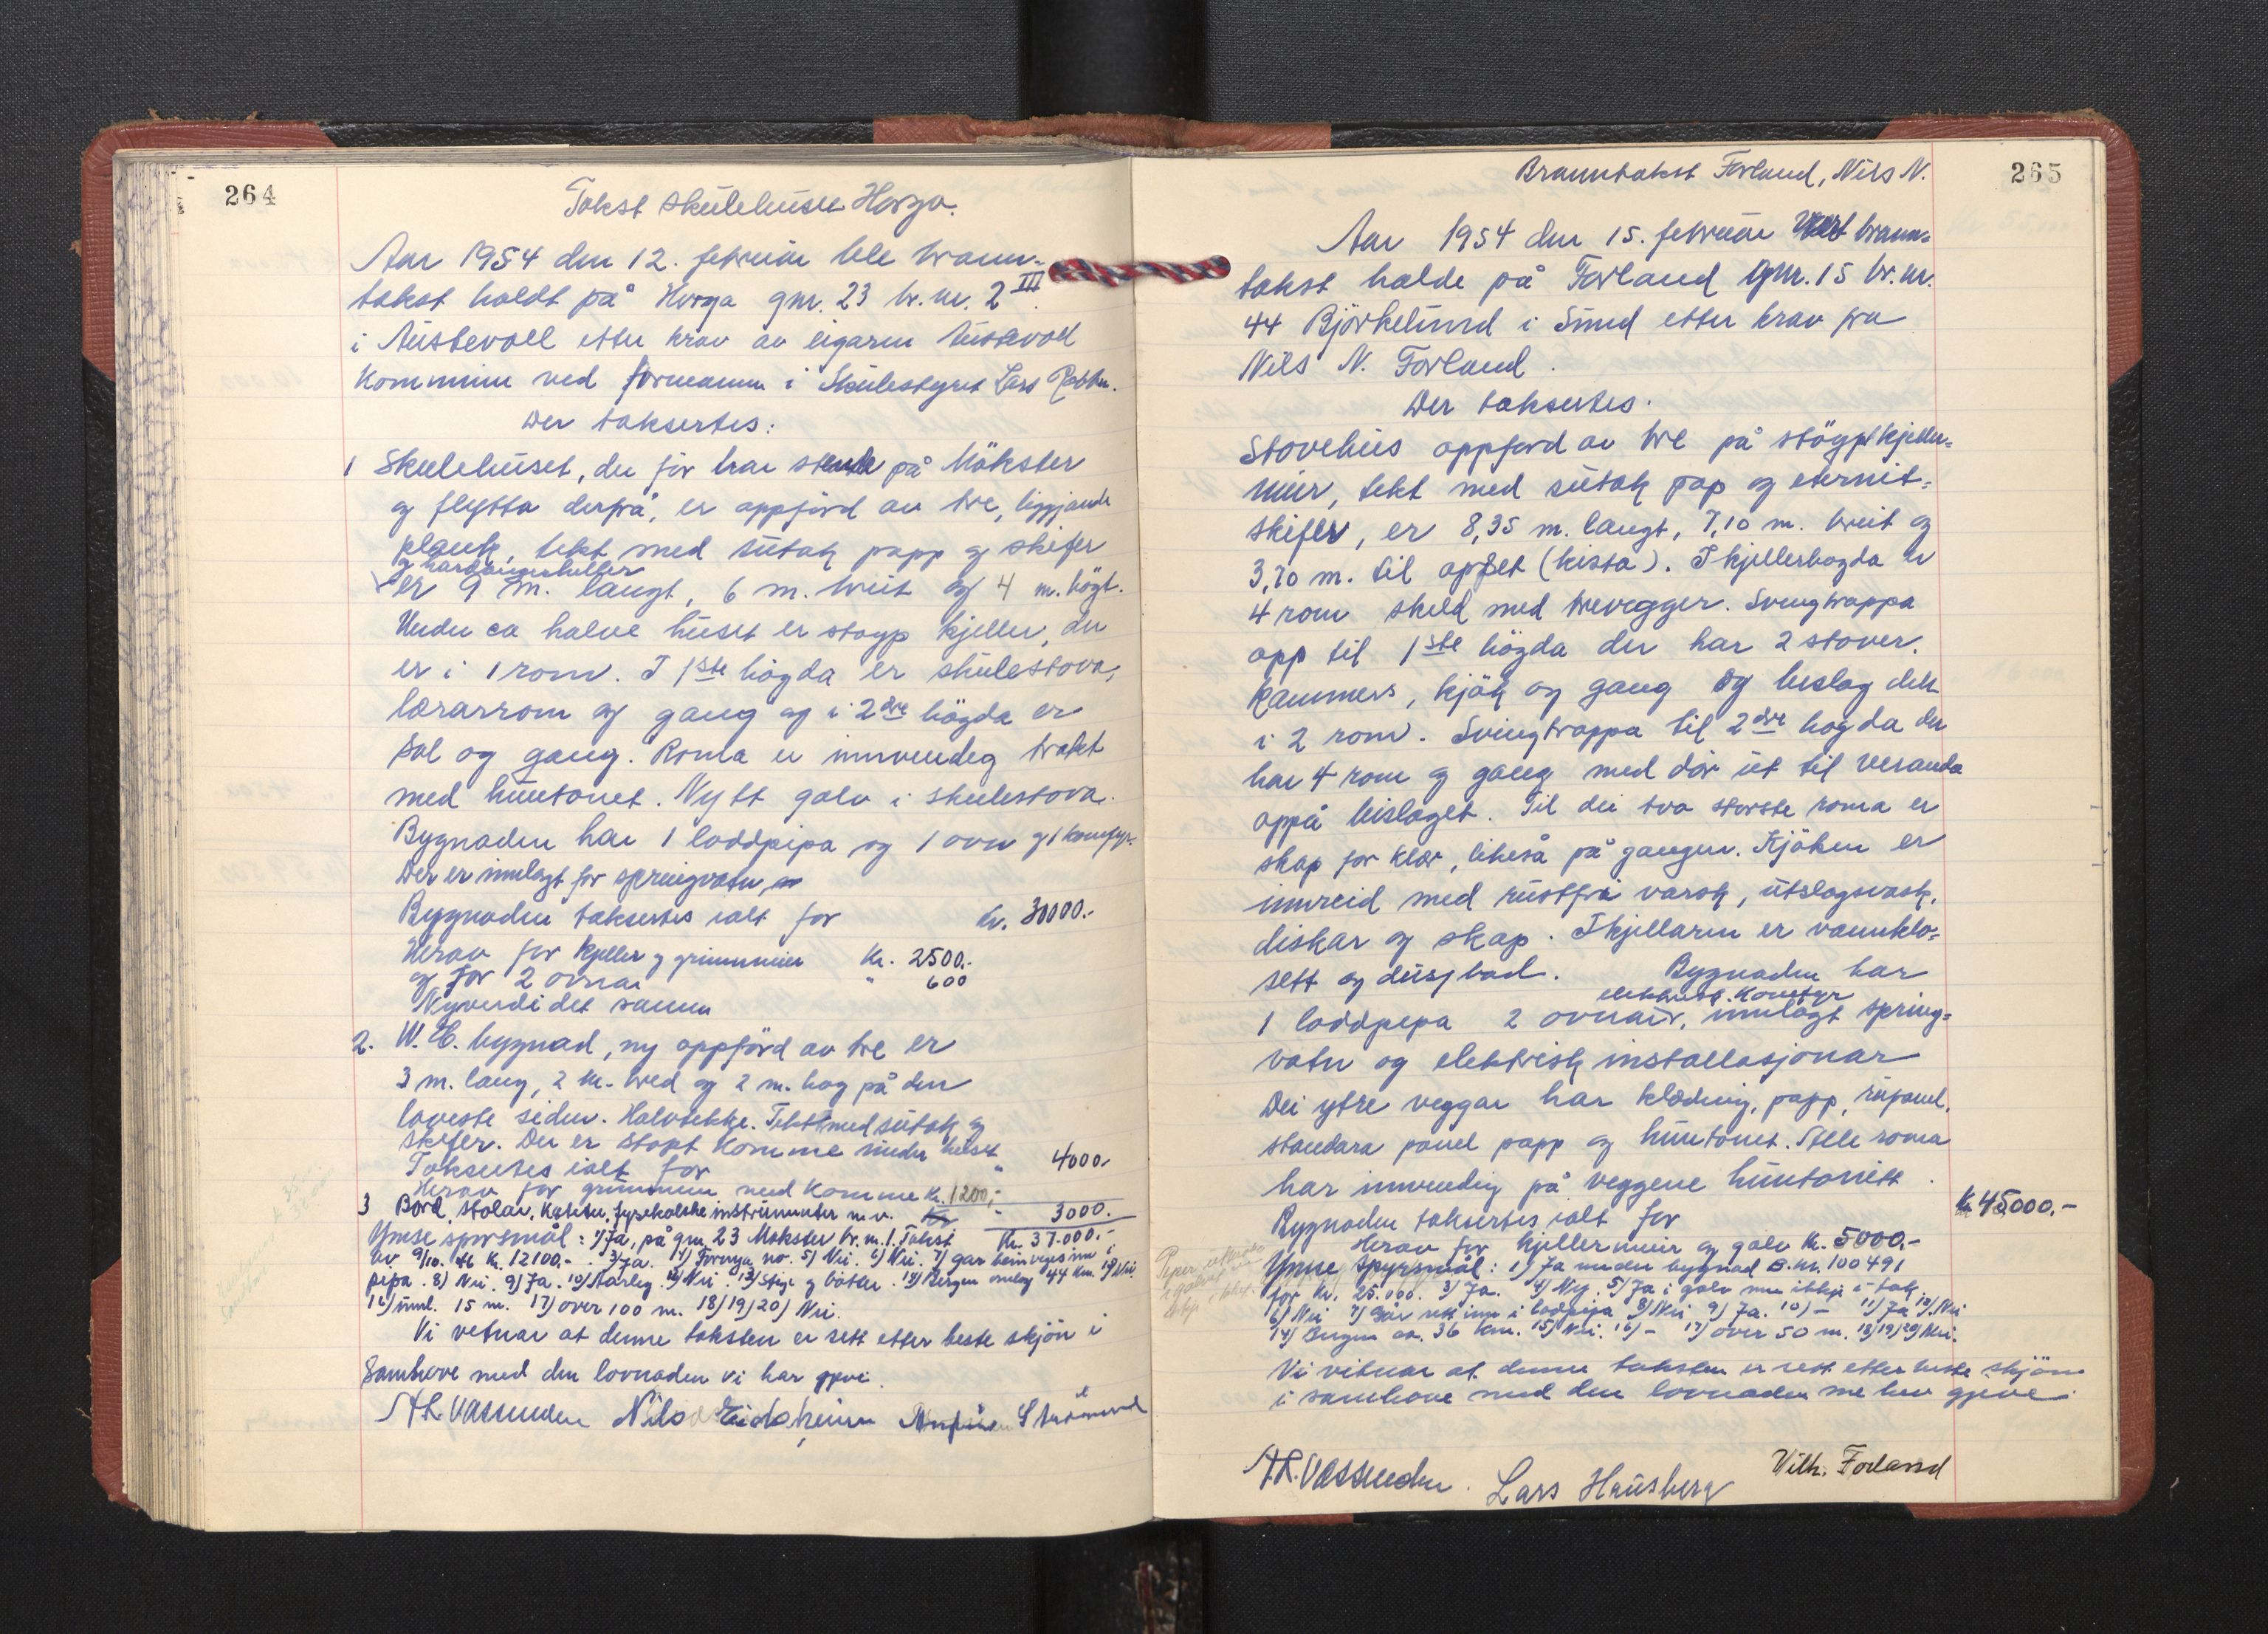 264
Takst skulehuset Horga.
Aar 1954 den 12. februar ble brann-
takst holdt på Horga gnr. 23 br. nr. 2 III.
i Austevoll etter krav av eigaren Austevoll
Kommune ved formann i Skulestyret Lars
Der taksertes:
1 Skulehuset, der för har stende på Mökster
og flytta derfrå, er oppförd av tre, liggjande
plank, tekt med sutak papp og skifer
og hardangerheller
er 9 m. langt, 6 m. breit og 4 m. högt.
Under ca halve huset er stöyp kjeller, der
er i 1 rom. I 1ste högda er skulestova,
lærarrom og gang og i 2dre högda er
sal og gang. Roma er innvendeg trekt
med huntonet. Nytt golv i skulestova.
Bygnaden har 1 loddpipa og 1 ovn og 1 komfyr.
Der er innlagt for springvatn
Bygnaden taksertes ialt for kr. 30000.-
Herav for kjeller og grunnmur kr. 2500.-
og for 2 ovnar " 600
Nyverdi det samme
2. W.C. bygnad, ny oppförd av tre er
3 m. lang, 2 m. bred og 2 m. hög på den
laveste siden. Halvtekke. Tekt med sutak og
skifer. Der er stöpt komme under huset
Taksertes ialt for " 4000.-
Herav for grunnmur med komme kr. 1200,-
3 Bord, stolar, kateter, fysikalske instrumenter m.v. " 3000.
Ymse spörsmål: 1) Ja, på gnr. 23 Mökster br. nr. 1. Takst Kr. 37.000.-
av 9/10. 46 kr. 12100.- 3) Ja. 4) Fornya no. 5) Nei. 6) Nei. 7) gar beinveges inn i
pipa. 8) Nei. 9) Ja. 10) Aarleg. 11) Nei. 12) Stige og bötter. 13) Bergen omlag 44 km. 14) Nei
16) uml. 15 m. 17) over 100 m. 18) 19) 20) Nei.
Vi vitnar at denne taksten er sett etter beste skjön i
Samhove med den lovnaden vi har gjevi.
A.L. Vassenden Nils Eidsheim Strömmen
265
Branntakst Forland, Nils N.
Aar 1954 den 15. februar Vart brann=
takst halde på Forland gnr. 15 br. nr.
44 Björkelund i Sund etter krav fra
Nils N. Forland.
Der taksertes.
Stovehus oppförd av tre på stöypt kjeller=
mur, tekt med sutak pap og eternit=
skifer, er 8,35 m. langt, 7,10 m. breit og
3,70 m. til opset (kista). I kjellerhogda er
4 rom skild med trevegger. Svingtrappa
opp til 1ste högda der har 2 stover,
kammers, kjök og gang og bislag delt
i 2 rom. Svingtrappa til 2dre högda der
har 4 rom og gang med dör ut til veranda
oppå bislaget. Til dei två største roma er
skap for klær, likeså på gangen. Kjöken er
innreid med rustfri varsk, utslagsvask,
diskar og skap. I kjellaren er vannklo=
sett og dusjbad. Bygnaden har
elektrisk. komfyr
1 loddpipa 2 ovnar, innlagt spring=
vatn og elektrisk installasjonar
Dei ytre veggar har klædning, papp, rupanel,
standara panel papp og huntonet. Alle roma
har innvendig på veggene huntonitt.
Bygnaden taksertes ialt for kr 45000.-
Herav for kjellermur og golv kr. 5000.-
Ymse Spyrsmål: 1) Ja under bygnad B.nr. 100491
for kr. 25.000. 3) Ja. 4) Ny. 5) Ja i golv men ikkje i tak.
6) Nei 7) Går rett inn i lodpipa 8) Nei 9) Ja. 10) - 11) Ja 12) Nei
14) Bergen ca. 36 km. 15) Nei. 16) - 17) over 50 m. 18) 19) 20) Nei.
Vi vitnar at denne taksten er sett etter beste skjön
i samhove med den lovnaden me hev gjeve.
A.L. Vassenden. Lars Hausberg Vilh. Forland